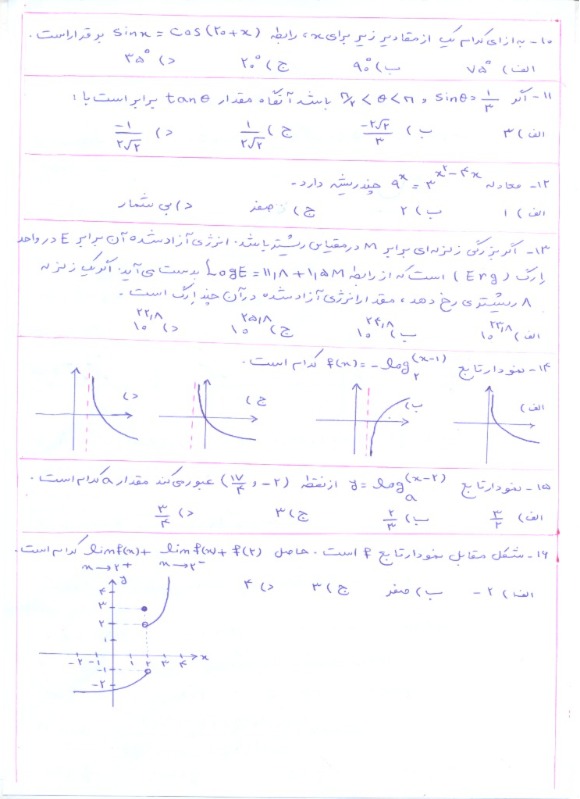 ۱۰- به ازای کدام یک از مقادیر زیر برای x، رابطه sinx = cos(۲۰+x) برقرار است.
الف) ۷۵° ب) ۹۰° ج) ۲۰° د) ۳۵°
۱۱- اگر sinθ = ۱/۳ و π/۲ < θ < π باشد آنگاه مقدار tanθ برابر است با:
الف) ۳ ب) -۲√۲/۳ ج) ۱/۲√۲ د) -۱/۲√۲
۱۲- معادله ۹^x = ۳^(x^۲-۴x) چند ریشه دارد.
الف) ۱ ب) ۲ ج) صفر د) بی شمار
۱۳- اگر بزرگی زلزله‌ای برابر M در مقیاس ریشتر باشد. انرژی آزاد شده آن برابر E در واحد
ارگ (Erg) است که از رابطه LogE = ۱۱,۸ + ۱,۵M بدست می‌آید. اگر یک زلزله
۸ ریشتری رخ دهد، مقدار انرژی آزاد شده در آن چند ارگ است.
الف) ۱۰^۲۳,۸ ب) ۱۰^۲۴,۸ ج) ۱۰^۲۵,۸ د) ۱۰^۲۲,۸
۱۴- نمودار تابع f(x) = -log_۲^(x-۱) کدام است.
الف) ب) ج) د)
۱۵- نمودار تابع y = log_a^(x-۲) از نقطه (۱۷/۴ و -۲) عبور می‌کند مقدار a کدام است.
الف) ۳/۲ ب) ۲/۳ ج) ۳ د) ۳/۴
۱۶- شکل مقابل نمودار تابع f است. حاصل lim f(x) + lim f(x) + f(۲) کدام است.
x→۲+ x→۲-
الف) -۲ ب) صفر ج) ۳ د) ۴
y
۴
۳
۲
۱
-۲ -۱ ۱ ۲ ۳ ۴ x
-۱
-۲